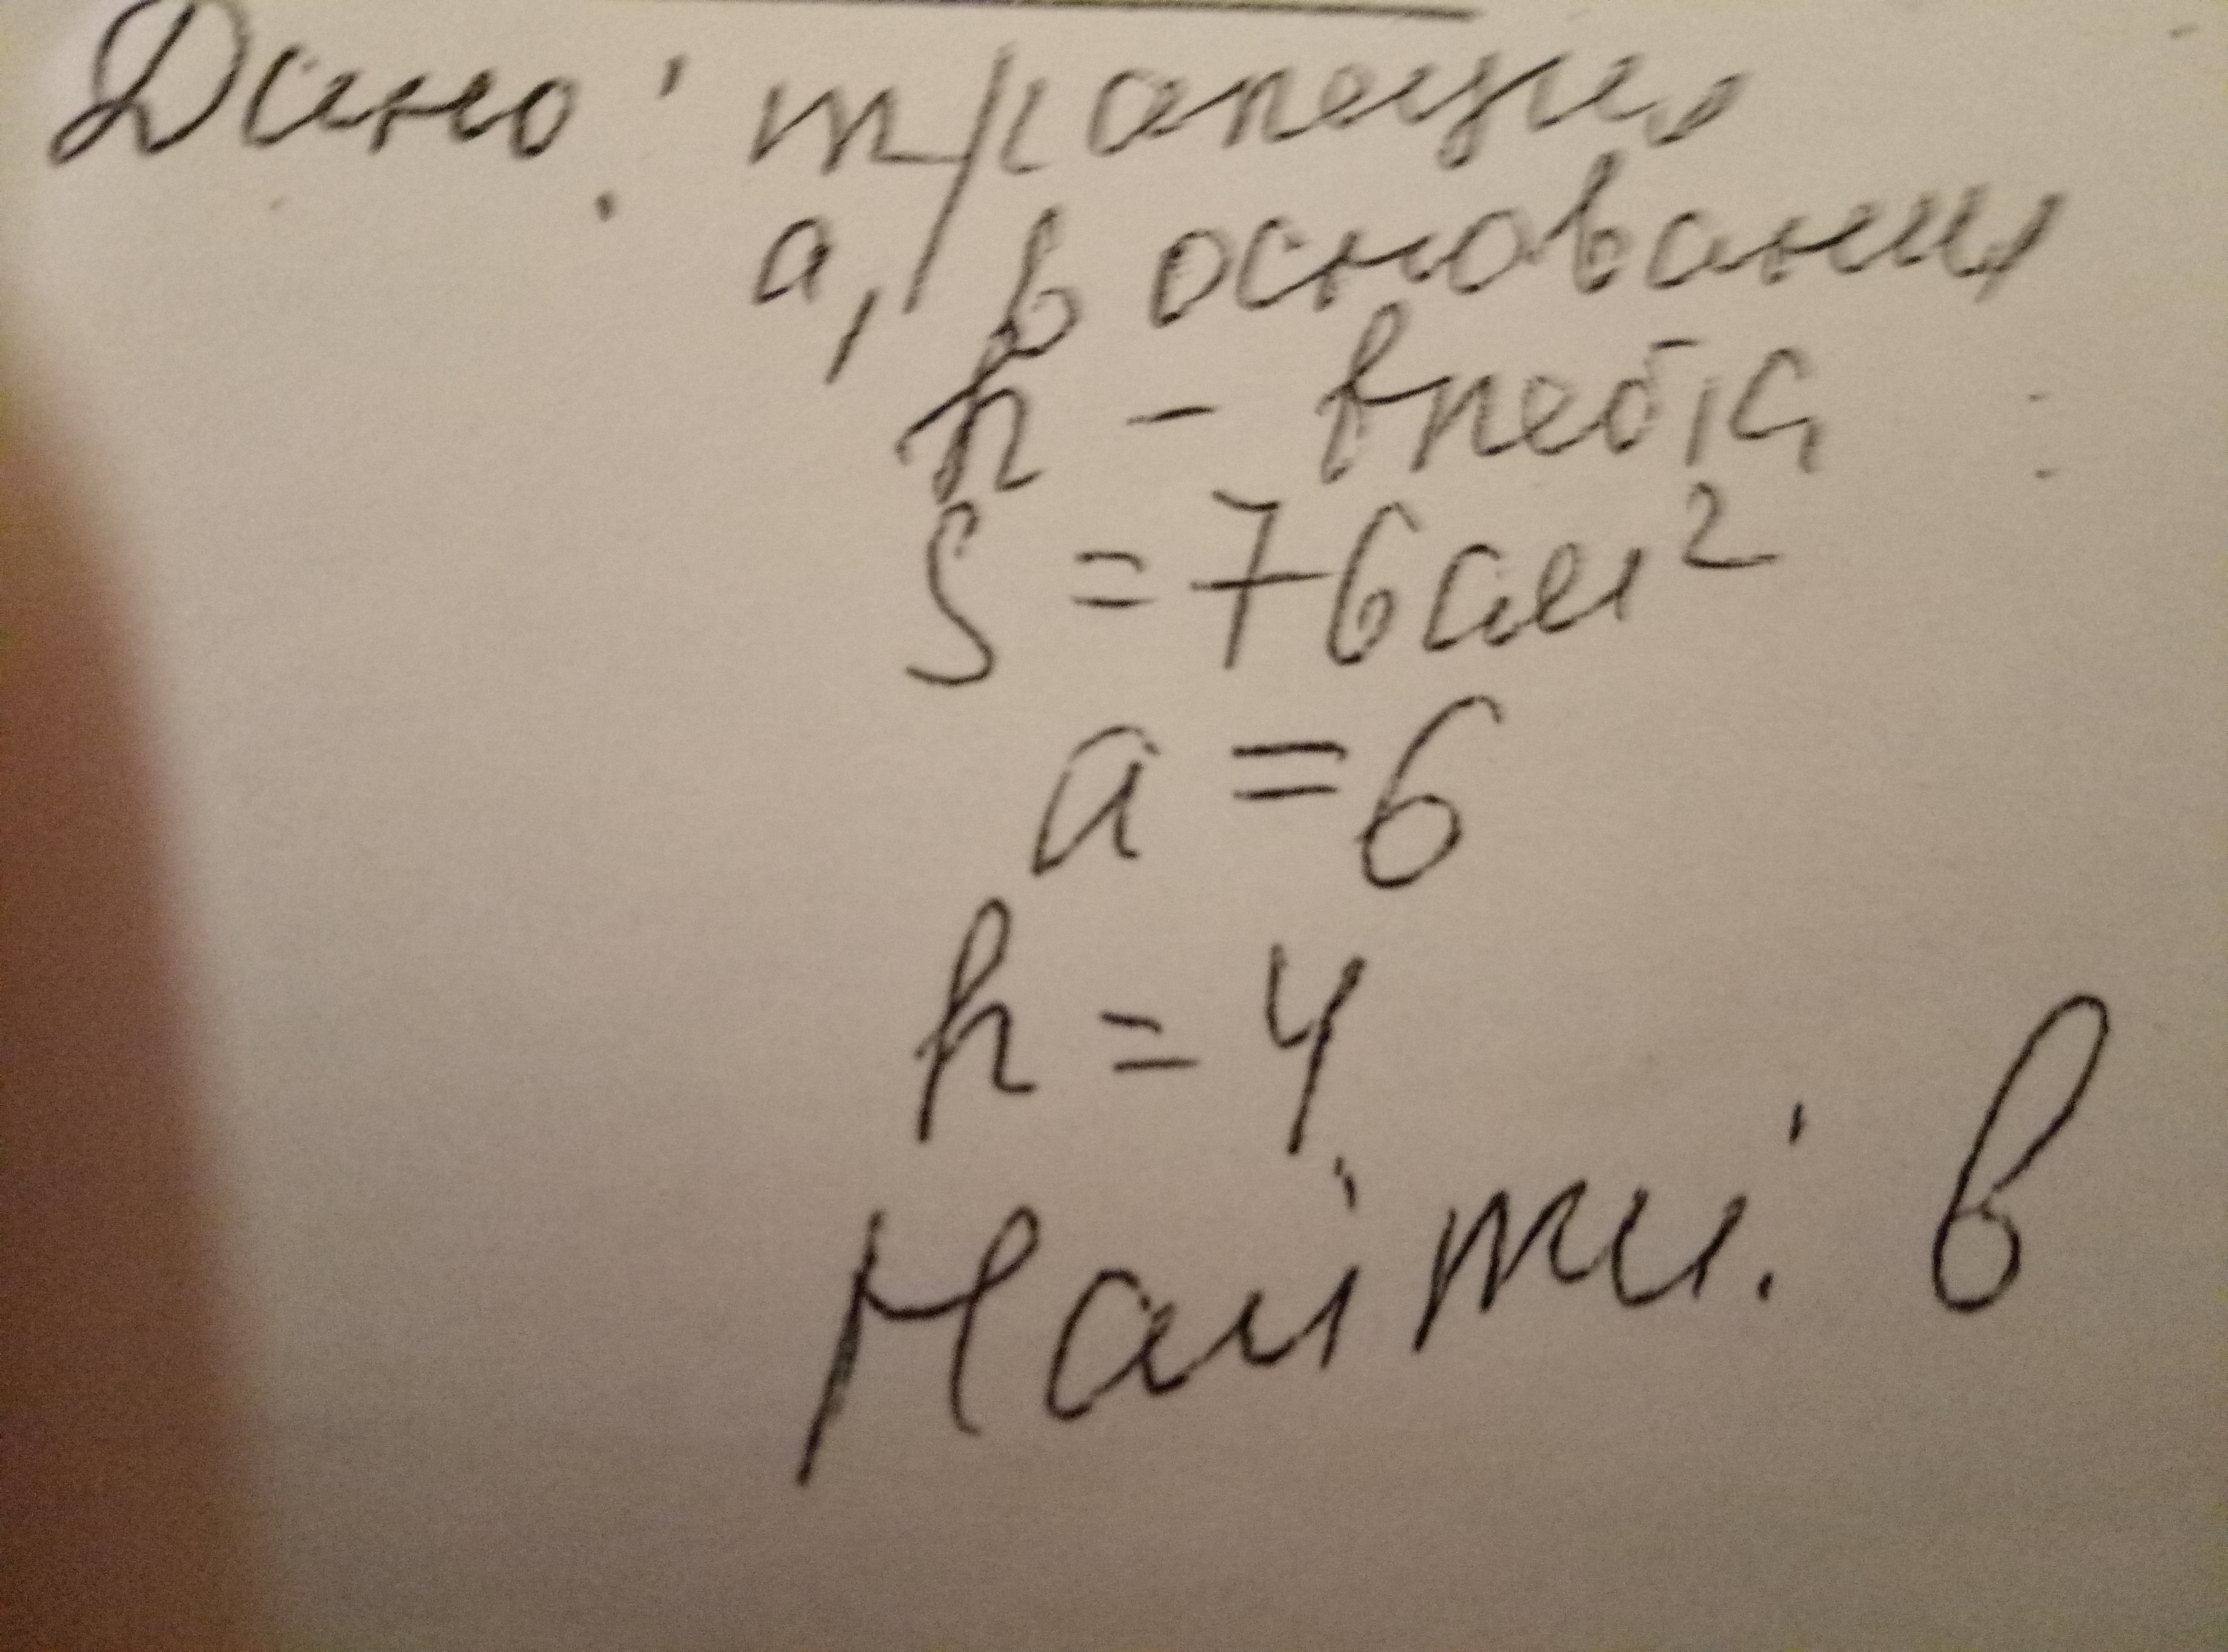 Дано: трапеция
a, b основания
h –
S = 76 см²
a = 6
h = 4
Найти: b